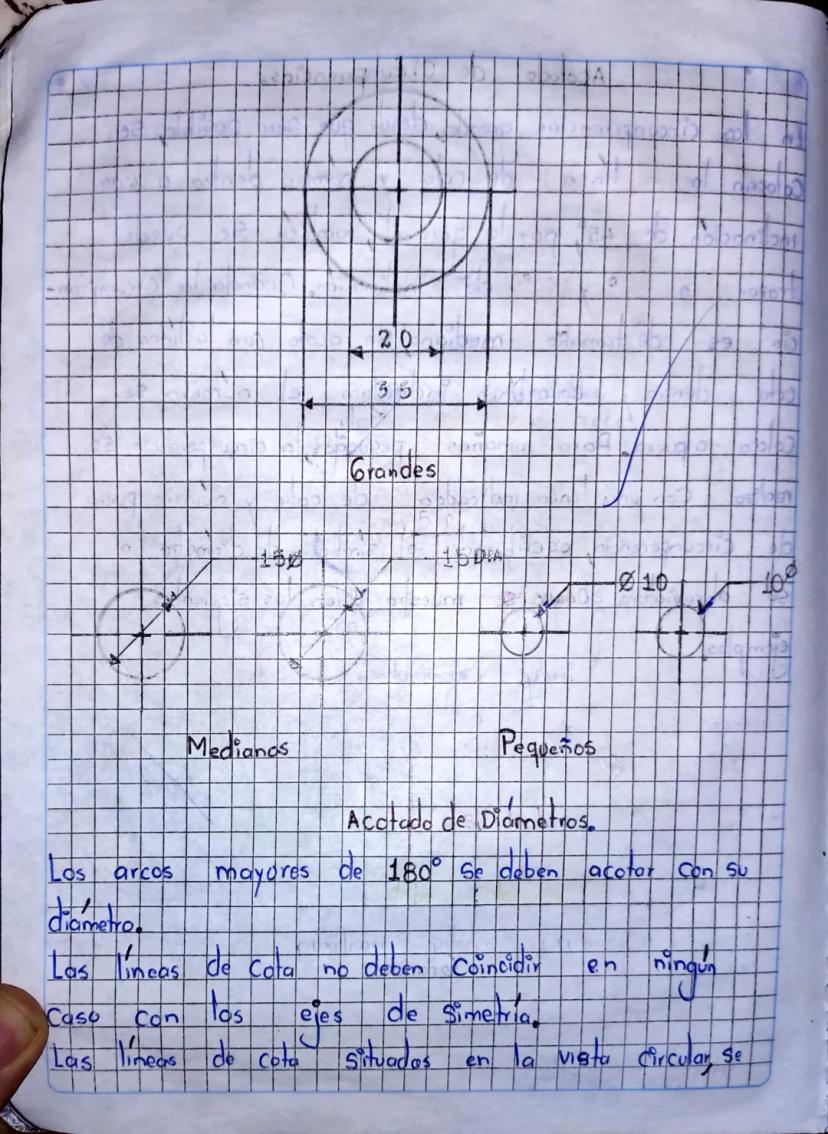 20
35
Grandes
15Ø
15 DIA
Ø 10
10Ø
Medianos
Pequeños
Acotado de Diámetros.
Los arcos mayores de 180° se deben acotar con su
diámetro.
Las líneas de cota no deben coincidir en ningún
caso con los ejes de simetría.
Las líneas de cota situadas en la vista circular, se